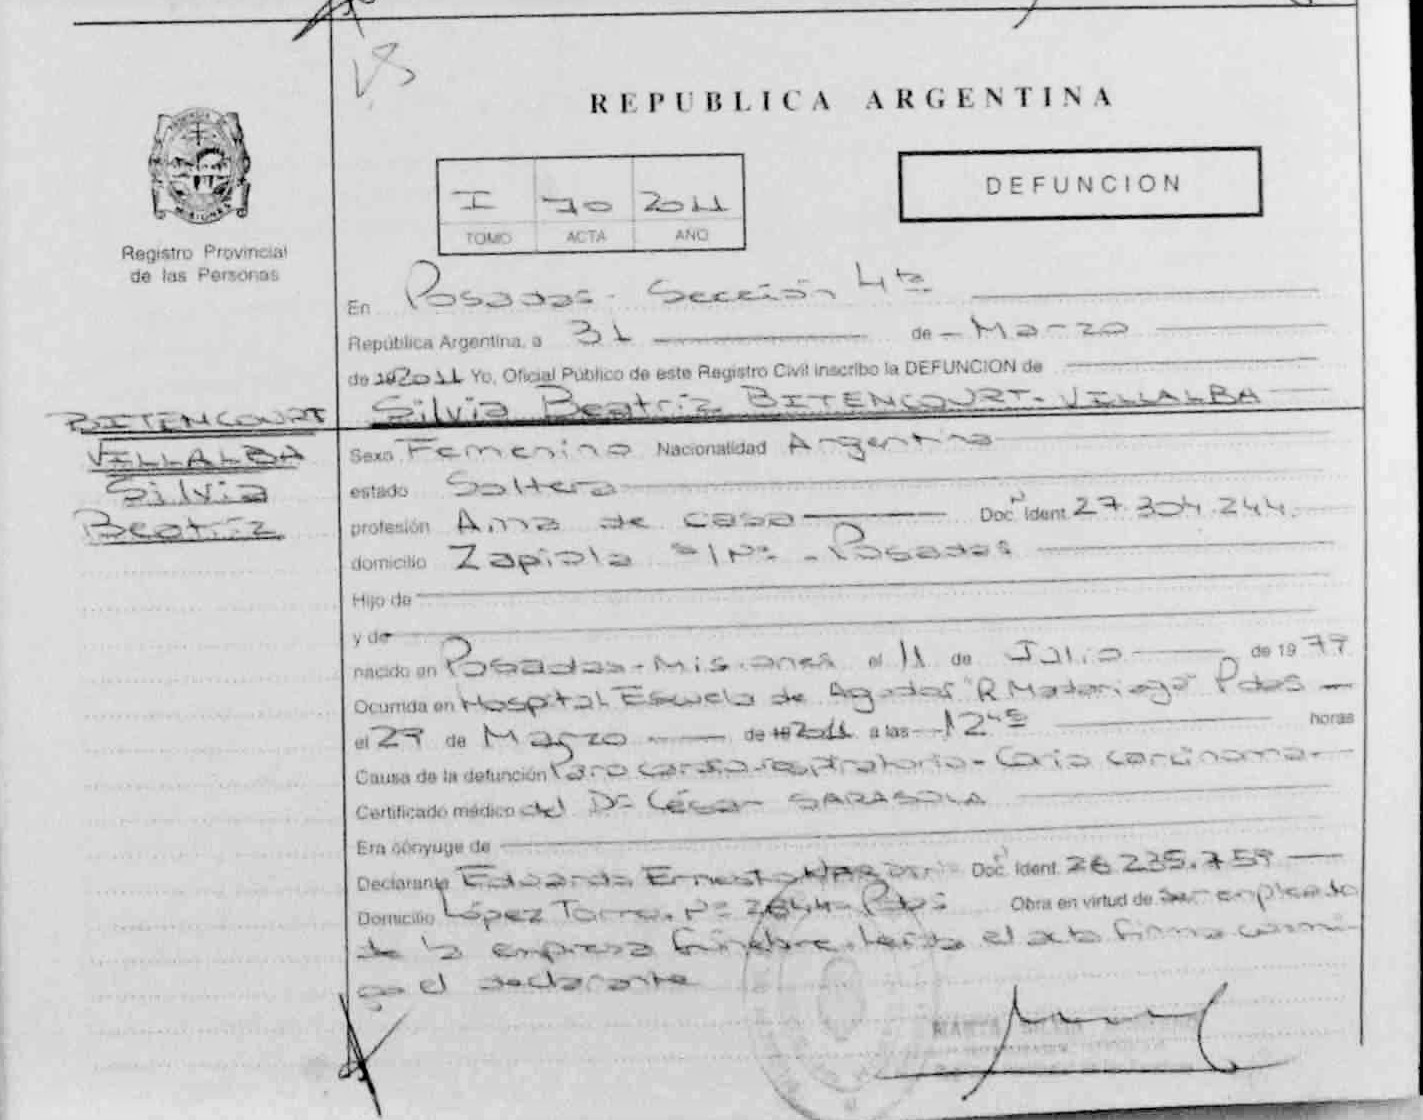 REPUBLICA ARGENTINA
DEFUNCION
I 70 2011
TOMO ACTA AÑO
Registro Provincial
de las Personas
En Posadas - Sección 4ta
República Argentina, a 31 de Marzo
de 2011 Yo, Oficial Público de este Registro Civil inscribo la DEFUNCION de
Silvia Beatriz BITENCOURT - VILLALBA
BITENCOURT
VILLALBA
Silvia
Beatriz
Sexo Femenino Nacionalidad Argentina
estado Soltera
profesión Ama de casa Doc. Ident. 27.304.244
domicilio Zapiola S/Nº - Posadas
Hijo de
y de
nacido en Posadas - Misiones el 11 de Julio de 1979
Ocurrida en Hospital Escuela de Agudos "R Madariaga" Pdas
el 29 de Marzo de 2011 a las 12 horas
Causa de la defunción Paro cardio-respiratorio - Corio carcinoma
Certificado médico del Dr César SARASOLA
Era cónyuge de
Declarante Eduardo Ernesto Doc. Ident. 26.235.759
Domicilio López Torres Nº 2644 - Pdas Obra en virtud de ser empleado
de la empresa fúnebre. Leída el acta firma conmi-
go el declarante